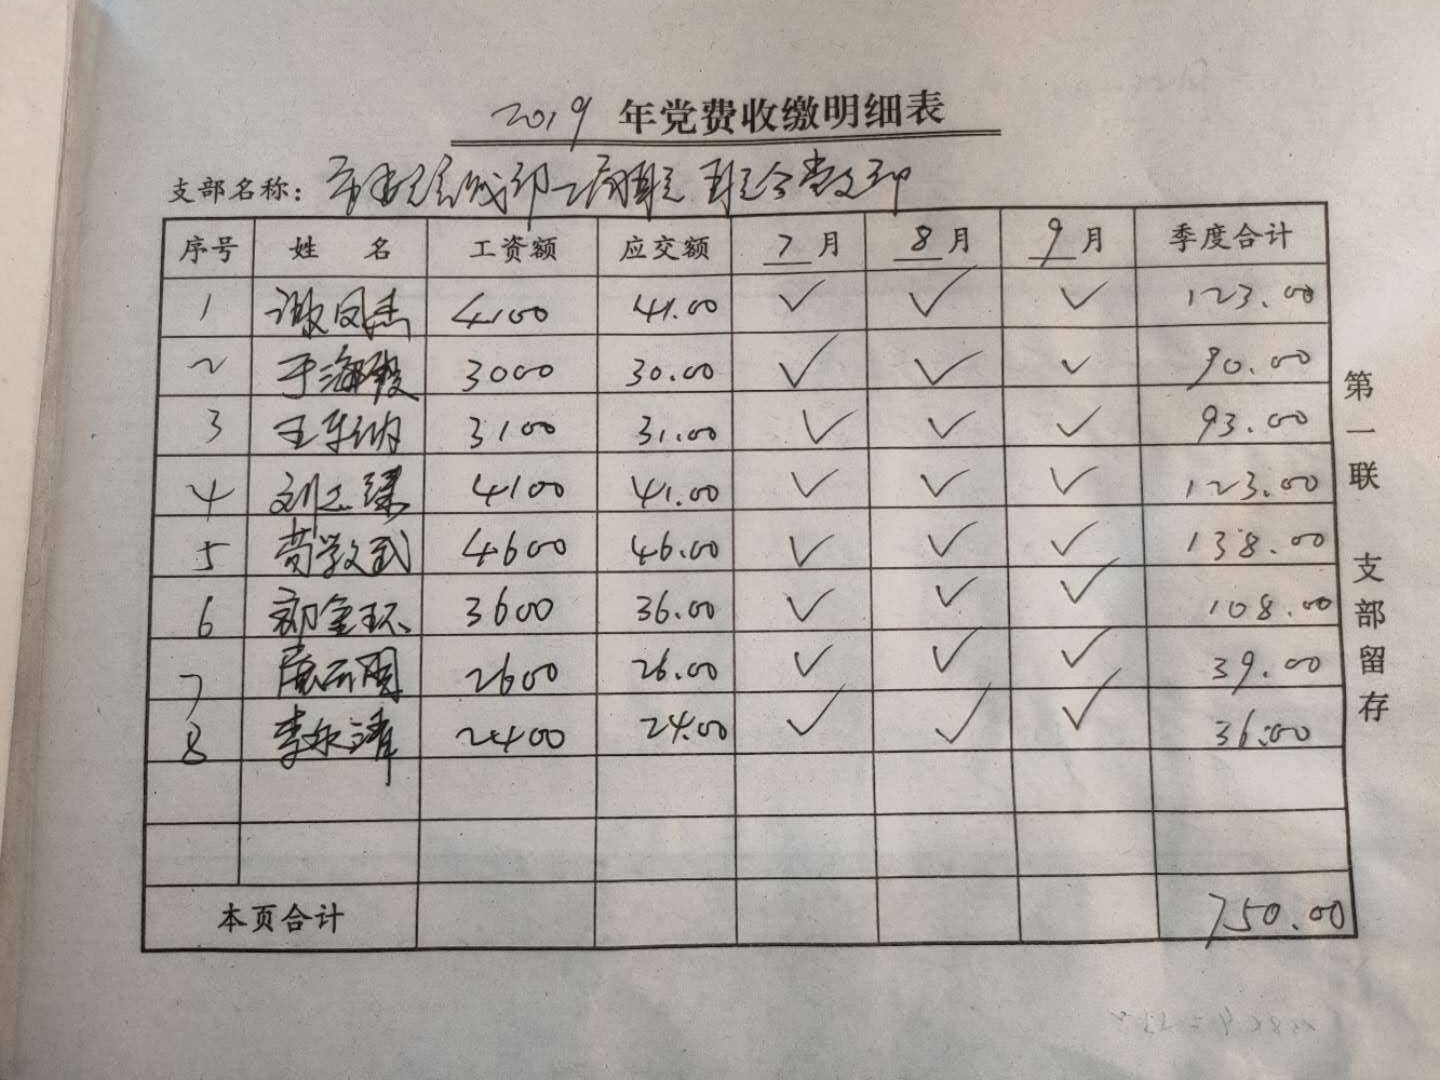 2019 年党费收缴明细表
支部名称：
序号 姓 名 工资额 应交额 7月 8月 9月 季度合计
1 谢凤杰 4100 41.00 ✓ ✓ ✓ 123.00
2 于海霞 3000 30.00 ✓ ✓ ✓ 90.00
3 王 3100 31.00 ✓ ✓ ✓ 93.00
4 刘志 4100 41.00 ✓ ✓ ✓ 123.00
5 苟学武 4600 46.00 ✓ ✓ ✓ 138.00
6 郭金环 3600 36.00 ✓ ✓ ✓ 108.00
7 2600 26.00 ✓ ✓ ✓ 39.00
8 李永涛 2400 24.00 ✓ ✓ ✓ 36.00
本页合计 750.00
第一联 支部留存